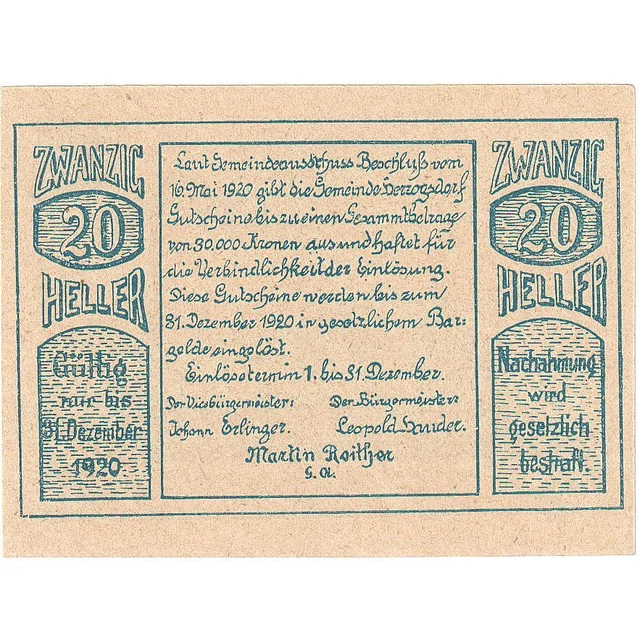 ZWANZIG
20
HELLER
Gültig
nur bis
31. Dezember
1920
Laut Gemeindeausschuss Beschluß vom
16. Mai 1920 gibt die Gemeinde Herzogsdorf
Gutscheine bis zu einen Gesammtbetrage
von 30.000 Kronen aus und haftet für
die Verbindlichkeit der Einlösung.
Diese Gutscheine werden bis zum
31. Dezember 1920 in gesetzlichem Bar=
gelde eingelöst.
Einlösetermin 1. bis 31. Dezember.
Der Vicebürgermeister: Der Bürgermeister:
Johann Erlinger. Leopold
Martin Reither
G. A.
ZWANZIG
20
HELLER
Nachahmung
wird
gesetzlich
bestraft.